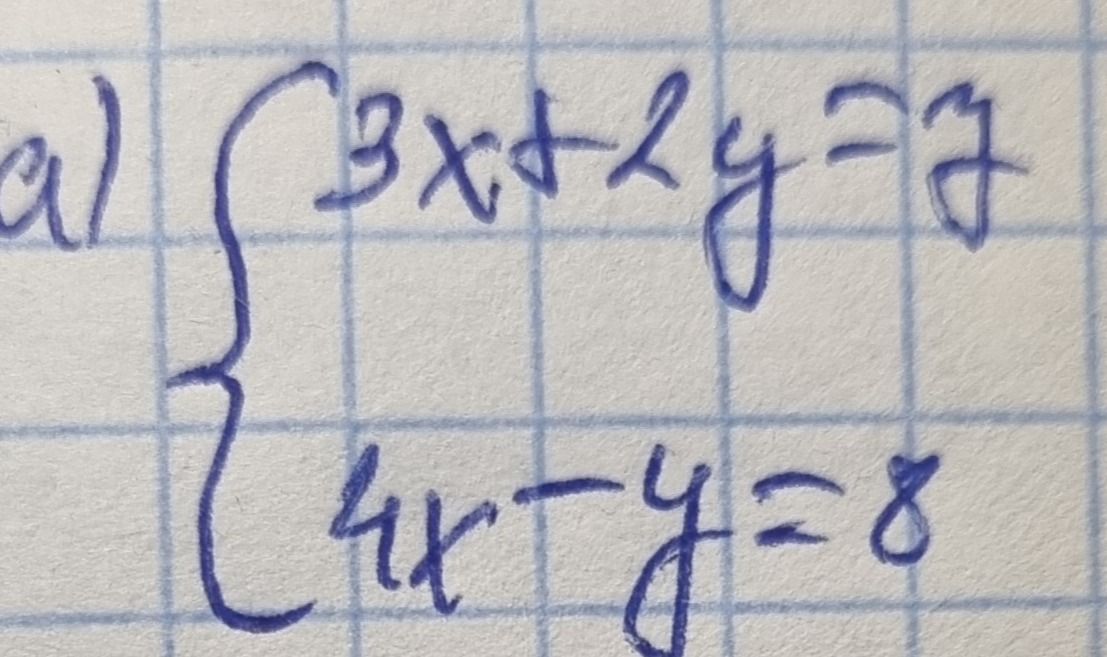 a) { 3x+2y=7
4x-y=8